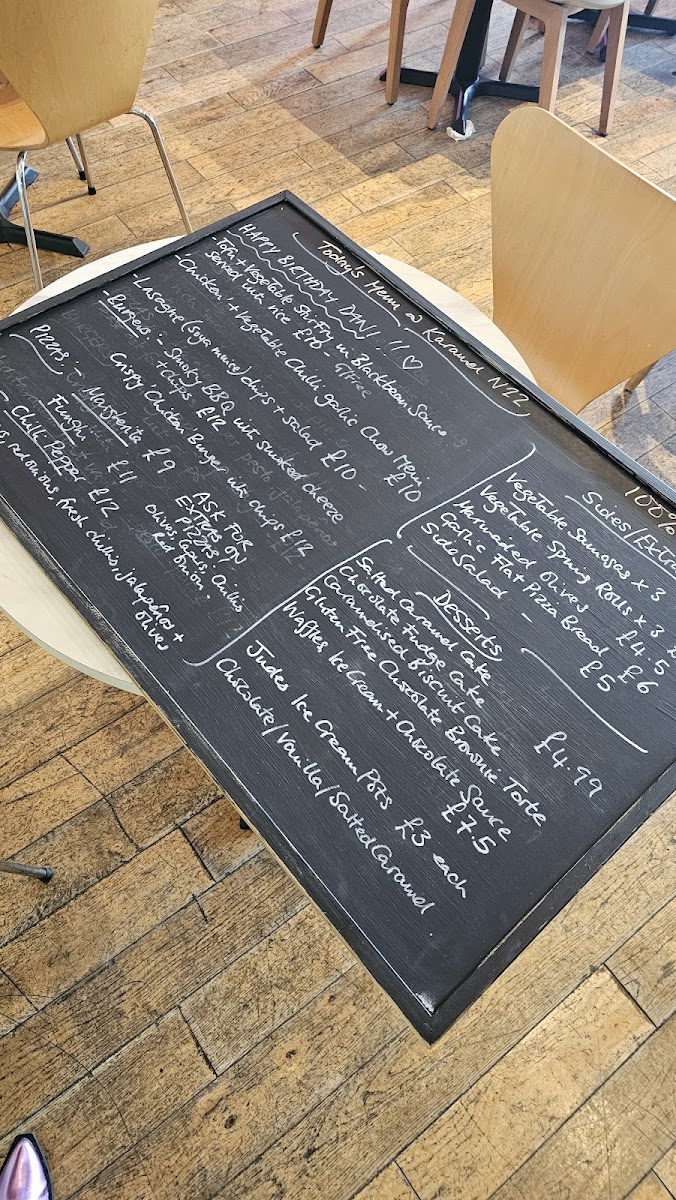 Today's Menu @ Karamel N22
100%
HAPPY BIRTHDAY DAN!!! ♡
- Tofu + Vegetable StirFry in Blackbean Sauce
served with rice £10 - GlFree
- 'Chicken' + Vegetable Chilli garlic Chow Mein £10
- Lasagne (soya mince) chips + salad £10 -
- Burgers: - Smoky BBQ with smoked cheese
+ chips £12
Crispy Chicken Burger with chips £12
Pizzas: - Margherita £9
Funghi £11
- Chilli Pepper £12
red onions, fresh chillis, jalapeños +
olives
ASK FOR
EXTRAS ON
PIZZAS
olives, chillis
Red Onion.
Sides/Extra
Vegetable Samosas x 3
Vegetable Spring Rolls x 3
Marinaired Olives £4.5
Garlic Flat Pizza Bread £6
Side Salad - £5
Desserts
Salted Caramel Cake
Chocolate Fudge Cake
Caramelised Biscuit Cake £4.99
Gluten Free Chocolate Brownie Torte
Waffles, Ice Cream + Chocolate Sauce
£7.5
Judes Ice Cream Pots £3 each
Chocolate/Vanilla/Salted Caramel